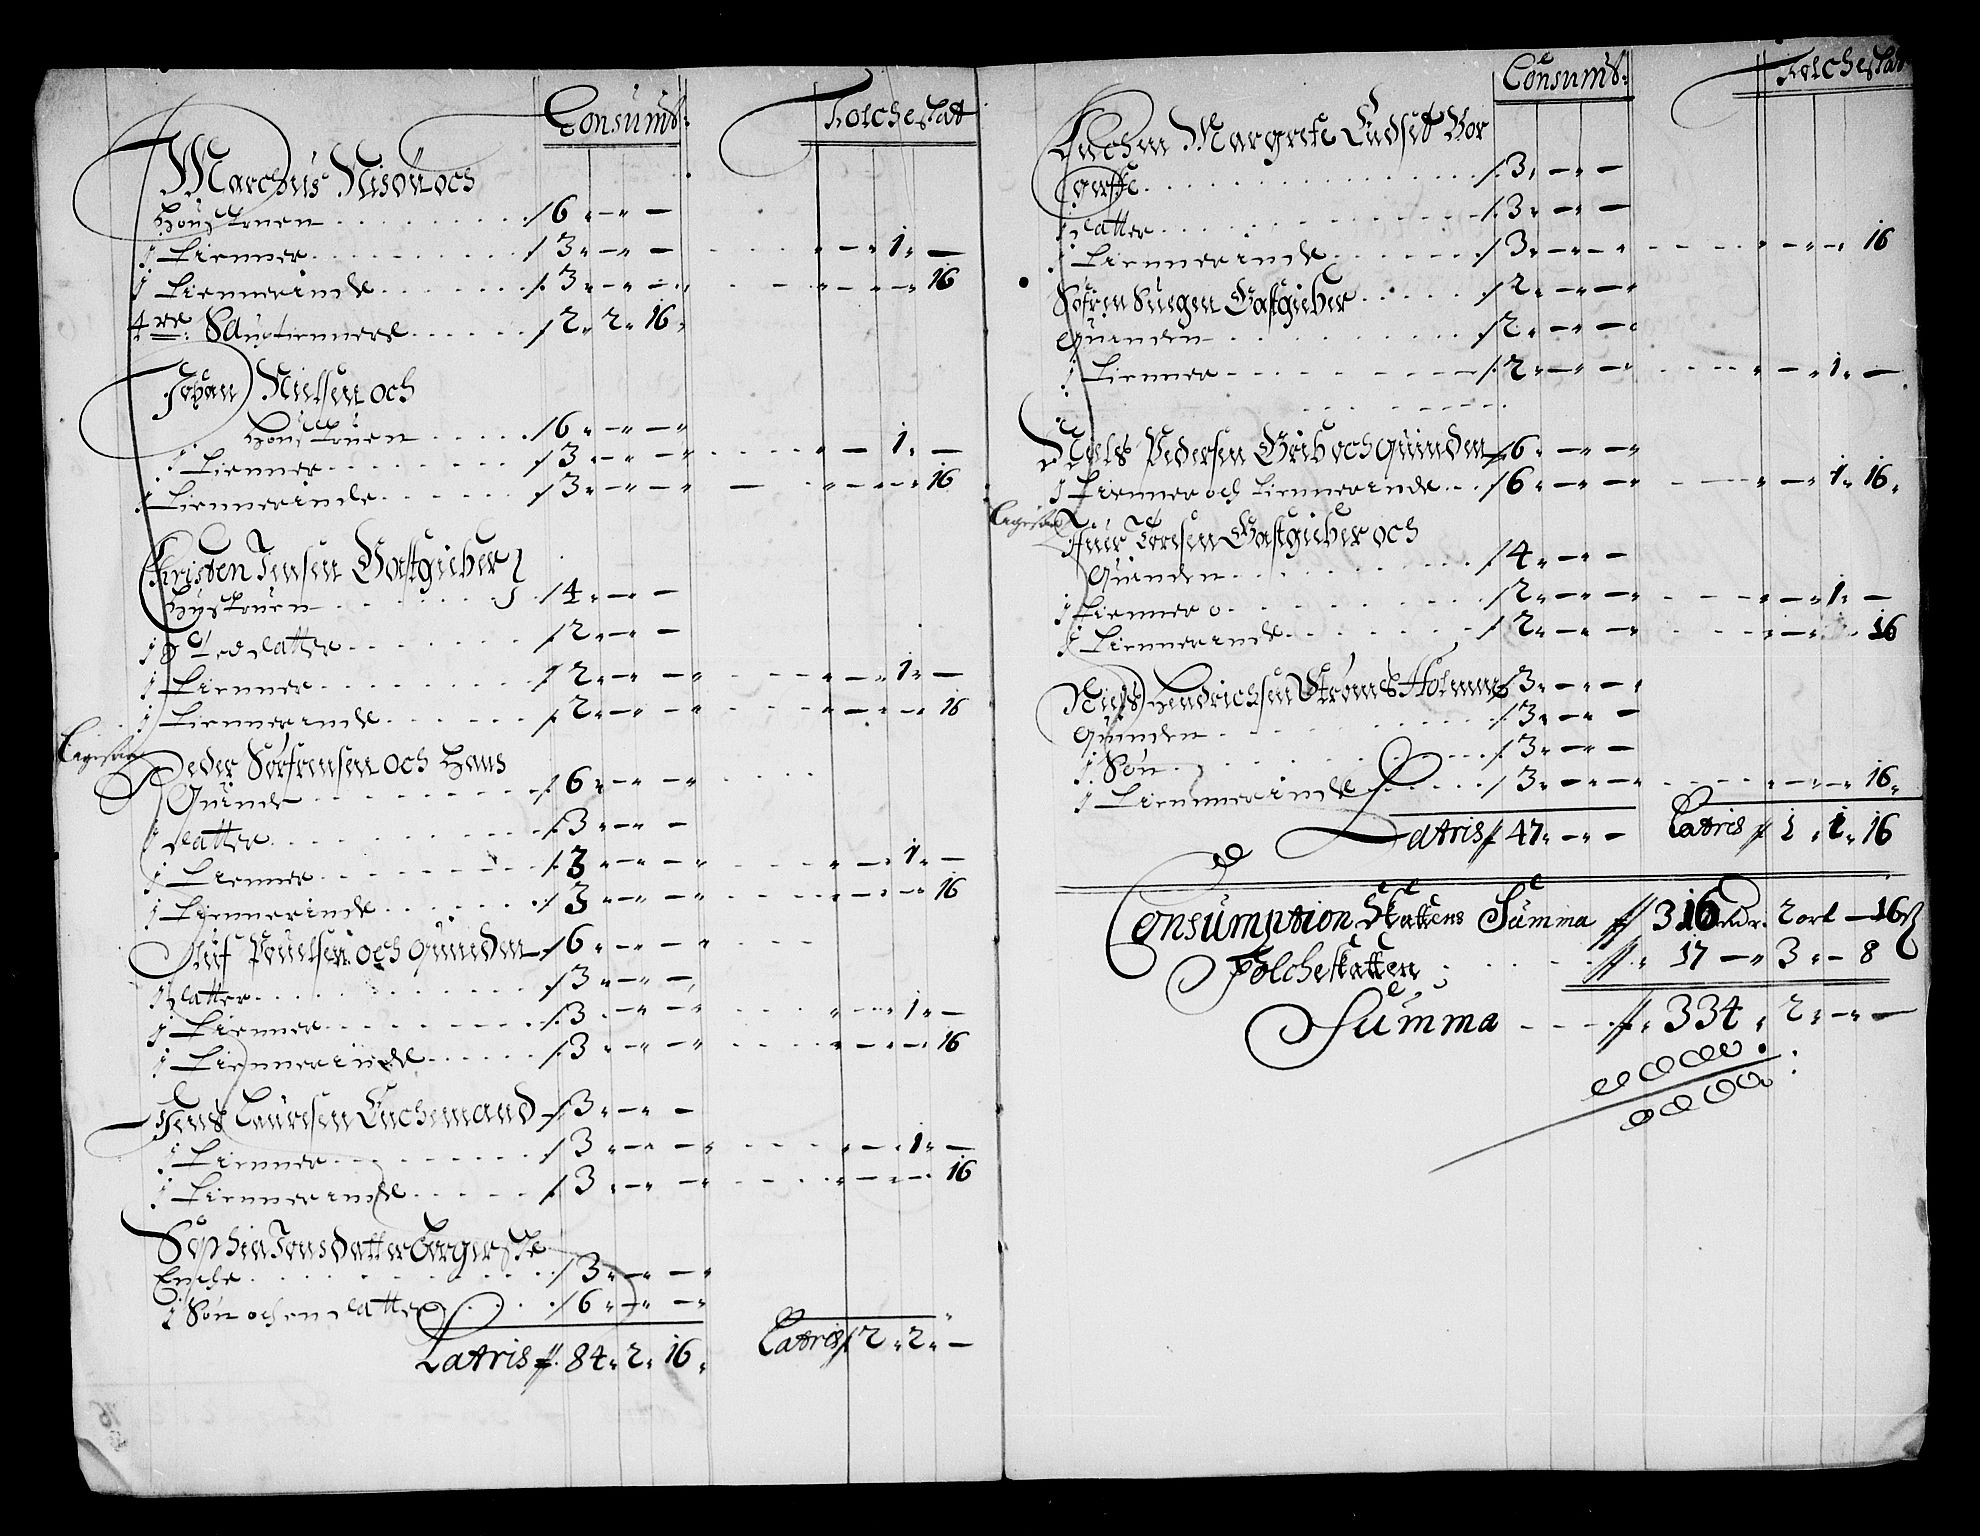 Consumt: Folcheskatt
Marchus Nisøn och
Houstruen . . . /6 " — " —
1 Tienner . . . /3 " — " — " — " 1 " —
1 Tiennerinde . . . /3 " — " — " — " — " 16
4re: Smaatiennere . . . /2 " 2 " 16 "
Johan Nielsen och
Houstruen . . . /6 " — " — "
1 Tienner . . . /3 " — " — " — " 1 " —
1 Tiennerinde . . . /3 " — " — " — " — " 16
Christen Jensen Gastgieber
Hustruen . . . /4 " — " —
1 Sted datter . . . /2 " — " —
1 Tienner . . . /2 " — " — " — " 1 " —
1 Tiennerinde . . . /2 " — " — " — " — " 16
Peder Sørfrensen och Hans
Quinde . . . /6 " — " — "
1 datter . . . /3 " — " —
1 Tienner . . . /3 " — " — " — " 1 " —
1 Tiennerinde . . . /3 " — " — " — " — " 16
Oluf Pouelsen och Quinden /6 " — " — "
1 datter . . . /3 " — " —
1 Tienner . . . /3 " — " — " — " 1 " —
1 Tiennerinde . . . /3 " — " — " — " — " 16
Jens Lauresen Enchemand /3 " — " —
1 Tienner . . . /3 " — " — " — " 1 " —
1 Tiennerinde . . . /3 " — " — " — " — " 16
Sophia Jensdatter Borgerske
Enche . . . /3 " — " — "
1 Søn och en datter . . . /6 " — " — "
Latris 84 " 2 " 16 " Latris 2 " 2 " —
Consumt: Folcheskatt
Enchen Margrete Cudset Bor
gerske . . . /3 " — " —
1 datter . . . /3 " — " —
1 Tiennerinde . . . /3 " — " — " — " — " 16
Søfren Suegen Gastgieber . . . /2 " — " — "
Quinden . . . /2 " — " —
1 Tienner . . . /2 " — " — " — " 1 " —
Niels Pedersen Grib och Quinden /6 " — " — "
1 Tienner och Tiennerinde . . /6 " — " — " — " 1 " 16 "
Iuer Toresen Gastgieber och
Quinden . . . /4 " — " —
1 Tienner . . . /2 " — " — " — " 1 " —
1 Tiennerinde . . . /2 " — " — " — " — " 16
Niels Hendrichsen Strøms Holmen /3 " — " — "
Quinden . . . /3 " — " —
1 Søn . . . /3 " — " —
1 Tiennerinde . . . /3 " — " — " — " — " 16 "
Latris 47 " — " — Latris 1 " 1 " 16
Consumption Skattens Summa 316 Rdr. 2 ort — 16 ß
Folcheskatten . . . 17 — " 3 " — 8
Summa - - - 334 " 2 " — " —